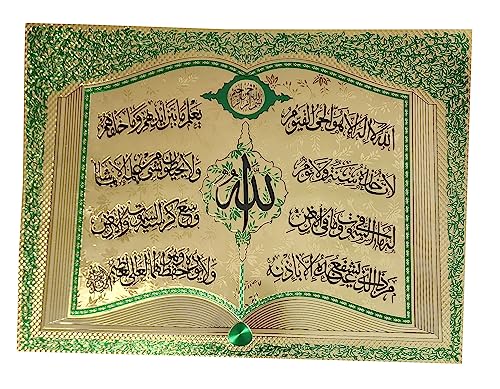 بسم الله الرحمن الرحيم
الله لا اله الا هو الحي القيوم
لا تاخذه سنة ولا نوم
له ما في السموات وما في الارض
من ذا الذي يشفع عنده الا باذنه
الله
يعلم ما بين ايديهم وما خلفهم
ولا يحيطون بشيء من علمه الا بما شاء
وسع كرسيه السموات والارض
ولا يؤده حفظهما وهو العلي العظيم